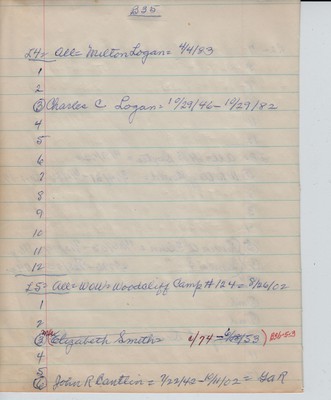 B35
L4= All= Milton Logan= 4/4/83
1
2
③ Charles C Logan= 10/29/46-10/29/82
4
5
6
7
8
9
10
11
12
L5= All= WOW= Woodcliff Camp # 124= 8/26/02
1
2
③ Elizabeth Smith= 6/74 - /53) B36-S-3
4
5
⑥ John R Cantlin= 7/22/42-10/11/02= GaR